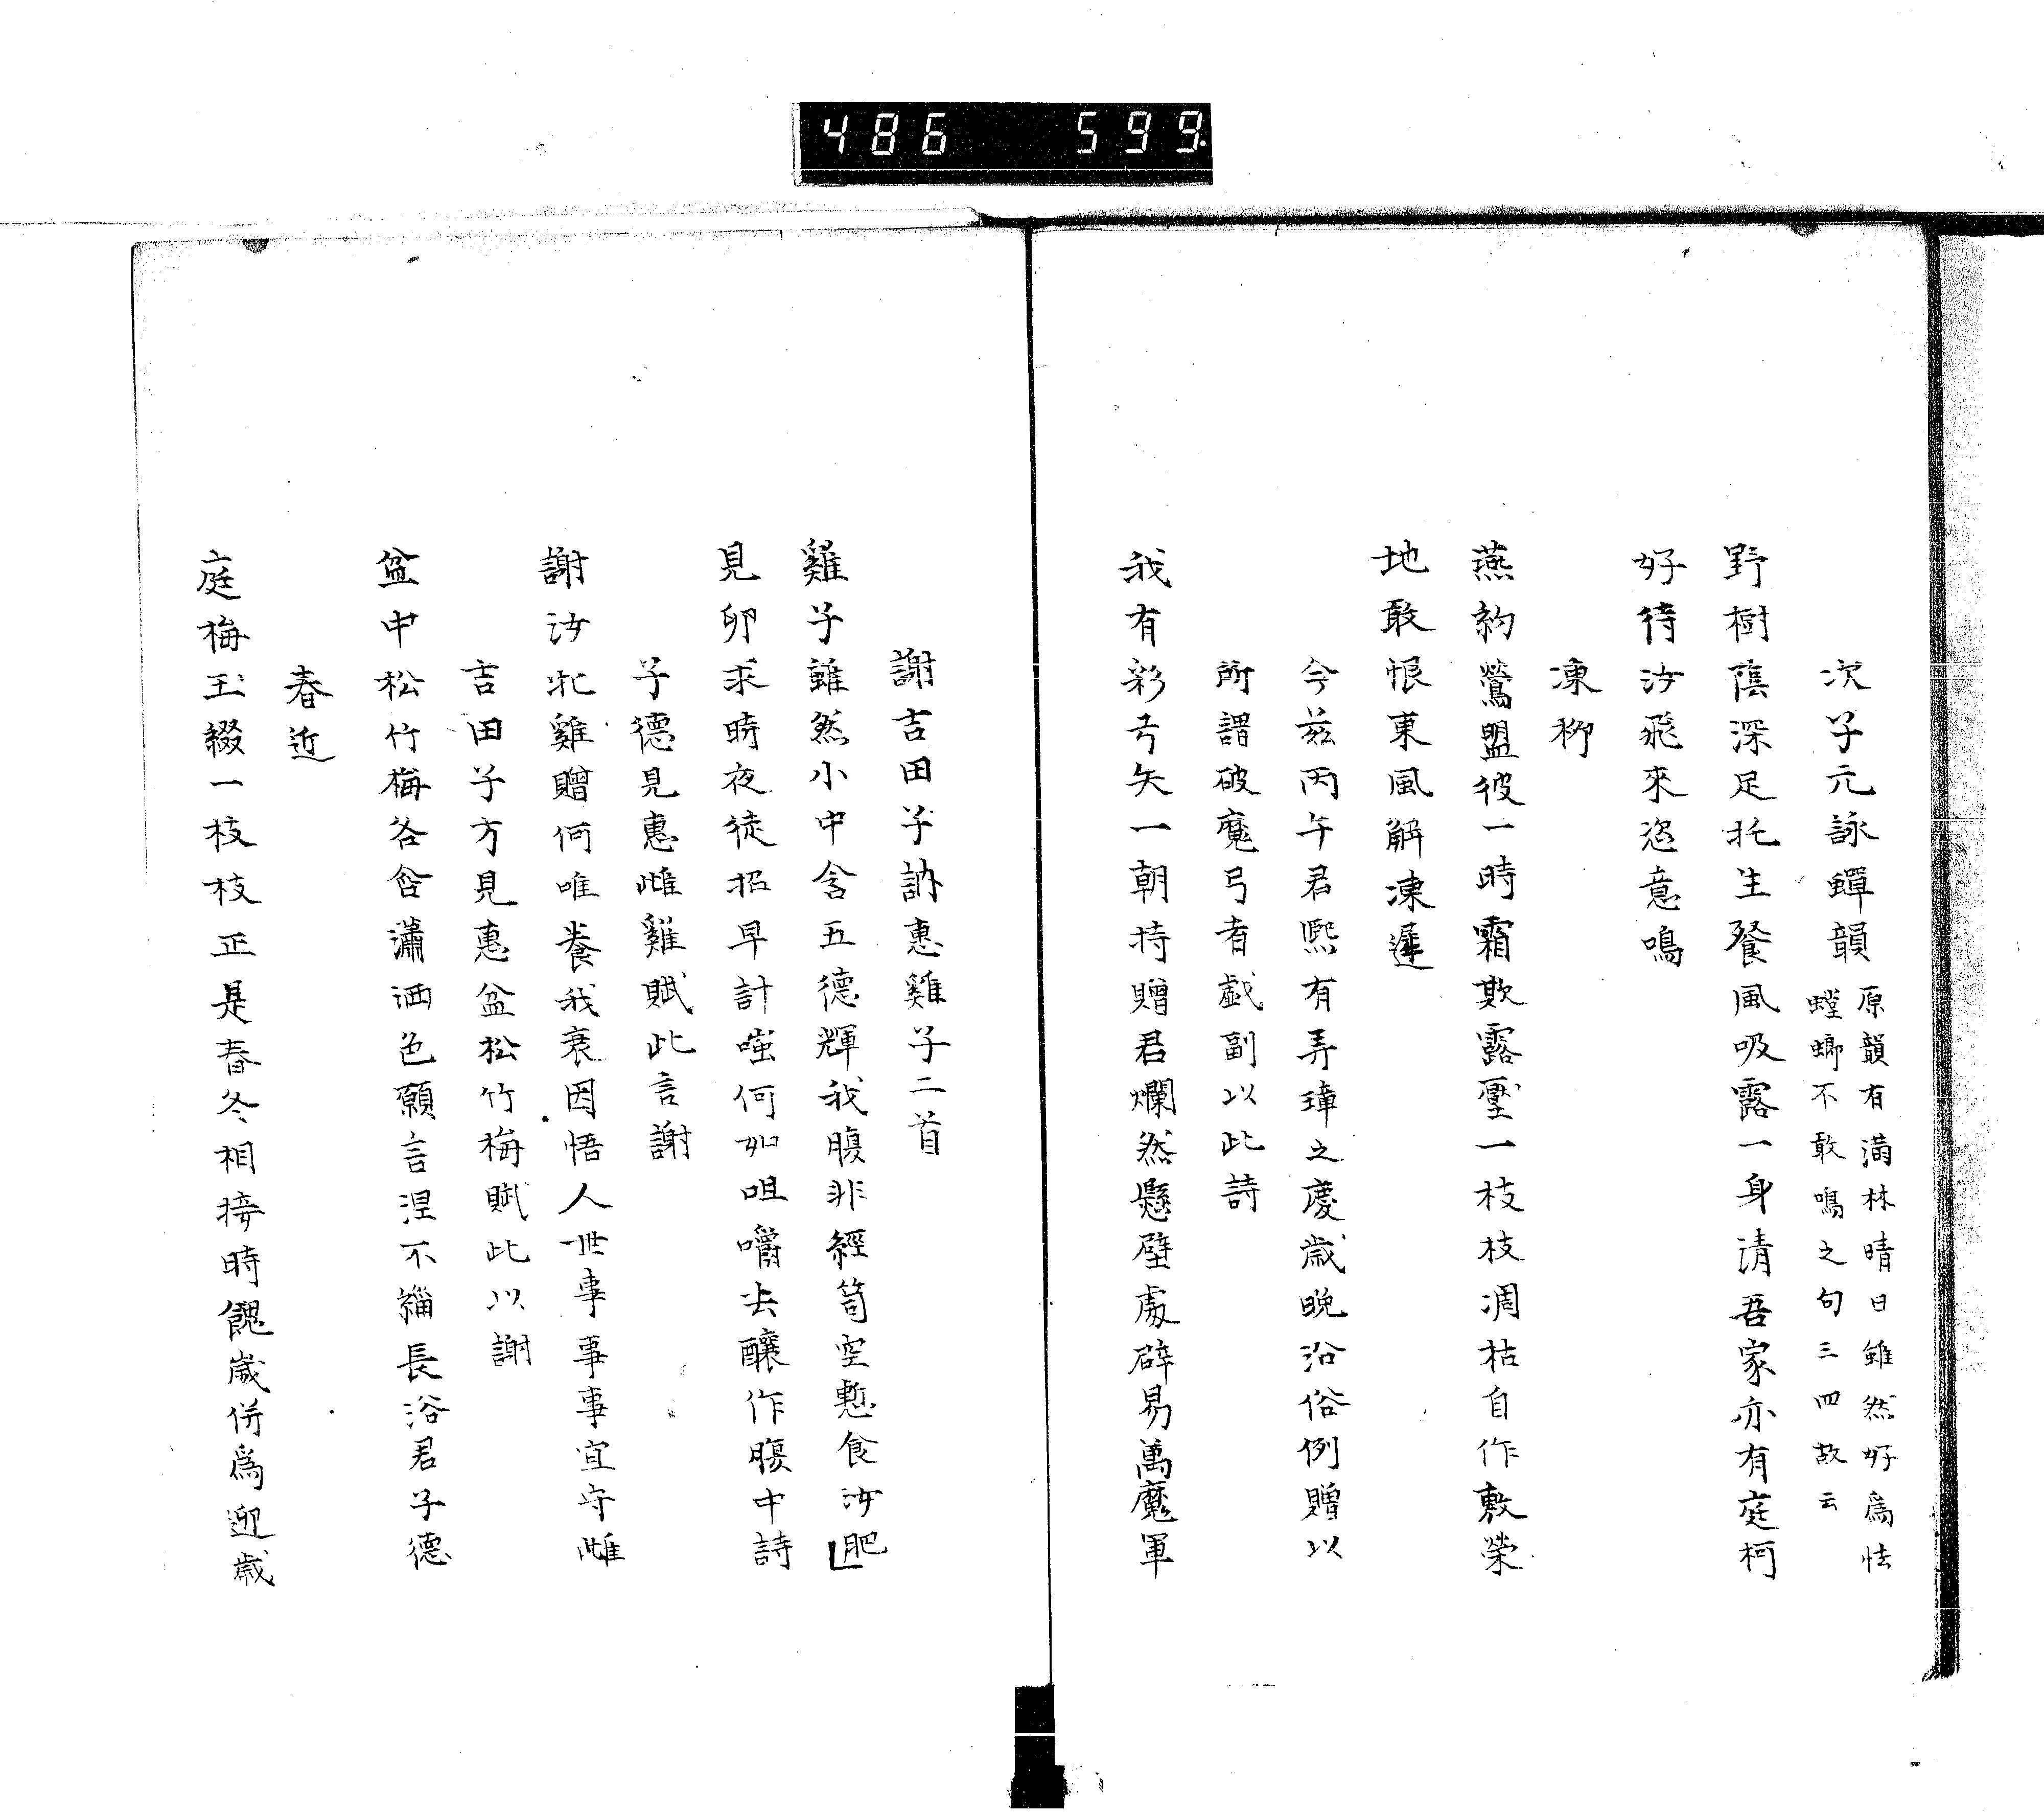 486 599
次子元詠蟬韻 原韻有滿林晴日雖然好爲怯
螳螂不敢鳴之句三四故云
野樹蔭深足托生餐風吸露一身清吾家亦有庭柯
好待汝飛來恣意鳴
凍柳
燕約鶯盟彼一時霜欺露壓一枝枝凋枯自作敷榮
地敢恨東風解凍遲
今茲丙午君熙有弄璋之慶歲晚沿俗例贈以
所謂破魔弓者戲副以此詩
我有彩弓矢一朝持贈君爛然懸壁處辟易萬魔軍
謝吉田子訥惠雞子二首
雞子雖然小中含五德輝我腹非經笥空慙食汝肥
見卵求時夜徒招早計嗤何如咀嚼去釀作腹中詩
子德見惠雌雞賦此言謝
謝汝牝雞贈何唯養我衰因悟人世事事事宜守雌
吉田子方見惠盆松竹梅賦此以謝
盆中松竹梅各含瀟洒色願言涅不緇長浴君子德
春近
庭梅玉綴一枝枝正是春冬相接時餽歲併爲迎歲